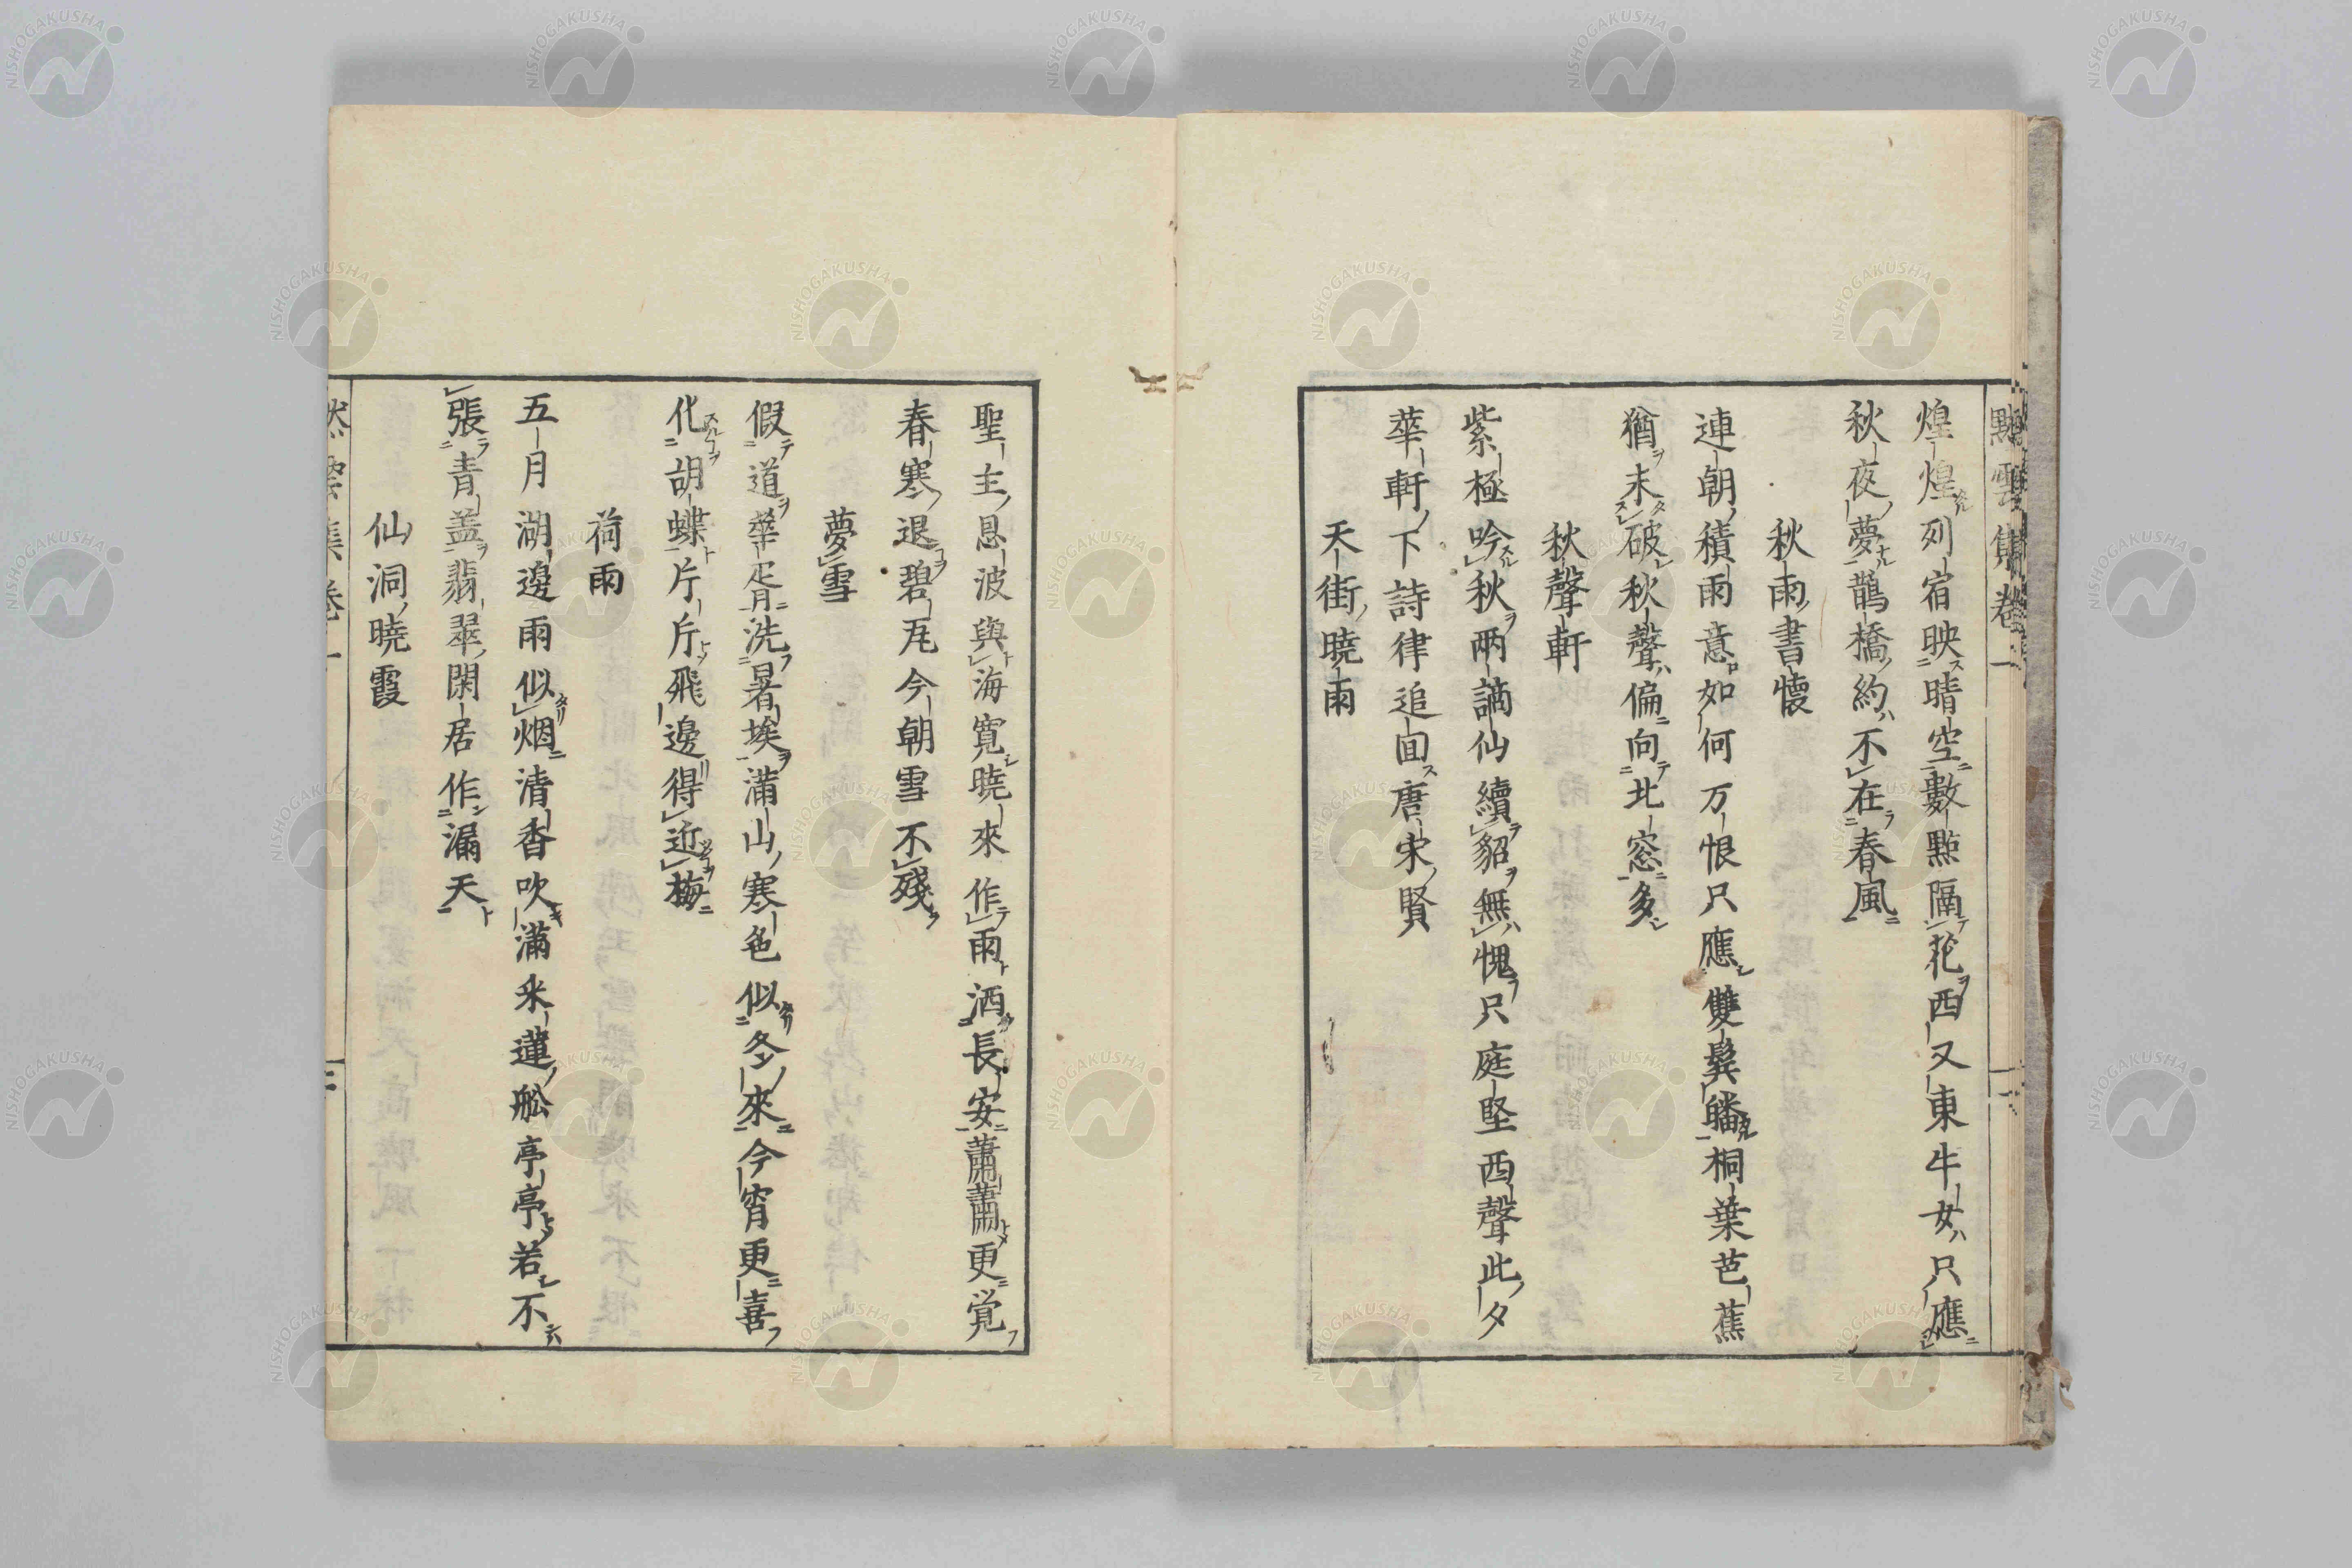 黙雲集卷一
煌煌列宿映晴空數點隔花西又東牛女只應
秋夜夢鵲橋約不在春風
秋雨書懷
連朝積雨意如何万恨只應雙鬂皤桐葉芭蕉
猶未破秋聲偏向北窓多
秋聲軒
紫極吟秋兩謫仙續貂無愧只庭堅西聲此夕
華軒下詩律追回唐宋賢
天街曉雨
聖主恩波與海寬曉來作雨洒長安蕭蕭更覚
春寒退碧瓦今朝雪不殘
夢雪
假道華胥洗暑埃滿山寒色似冬來今宵更喜
化胡蝶片片飛邊得近梅
荷雨
五月湖邊雨似烟清香吹滿采蓮舩亭亭若不
張青盖翡翠閑居作漏天
仙洞曉霞
NISHOGAKUSHA